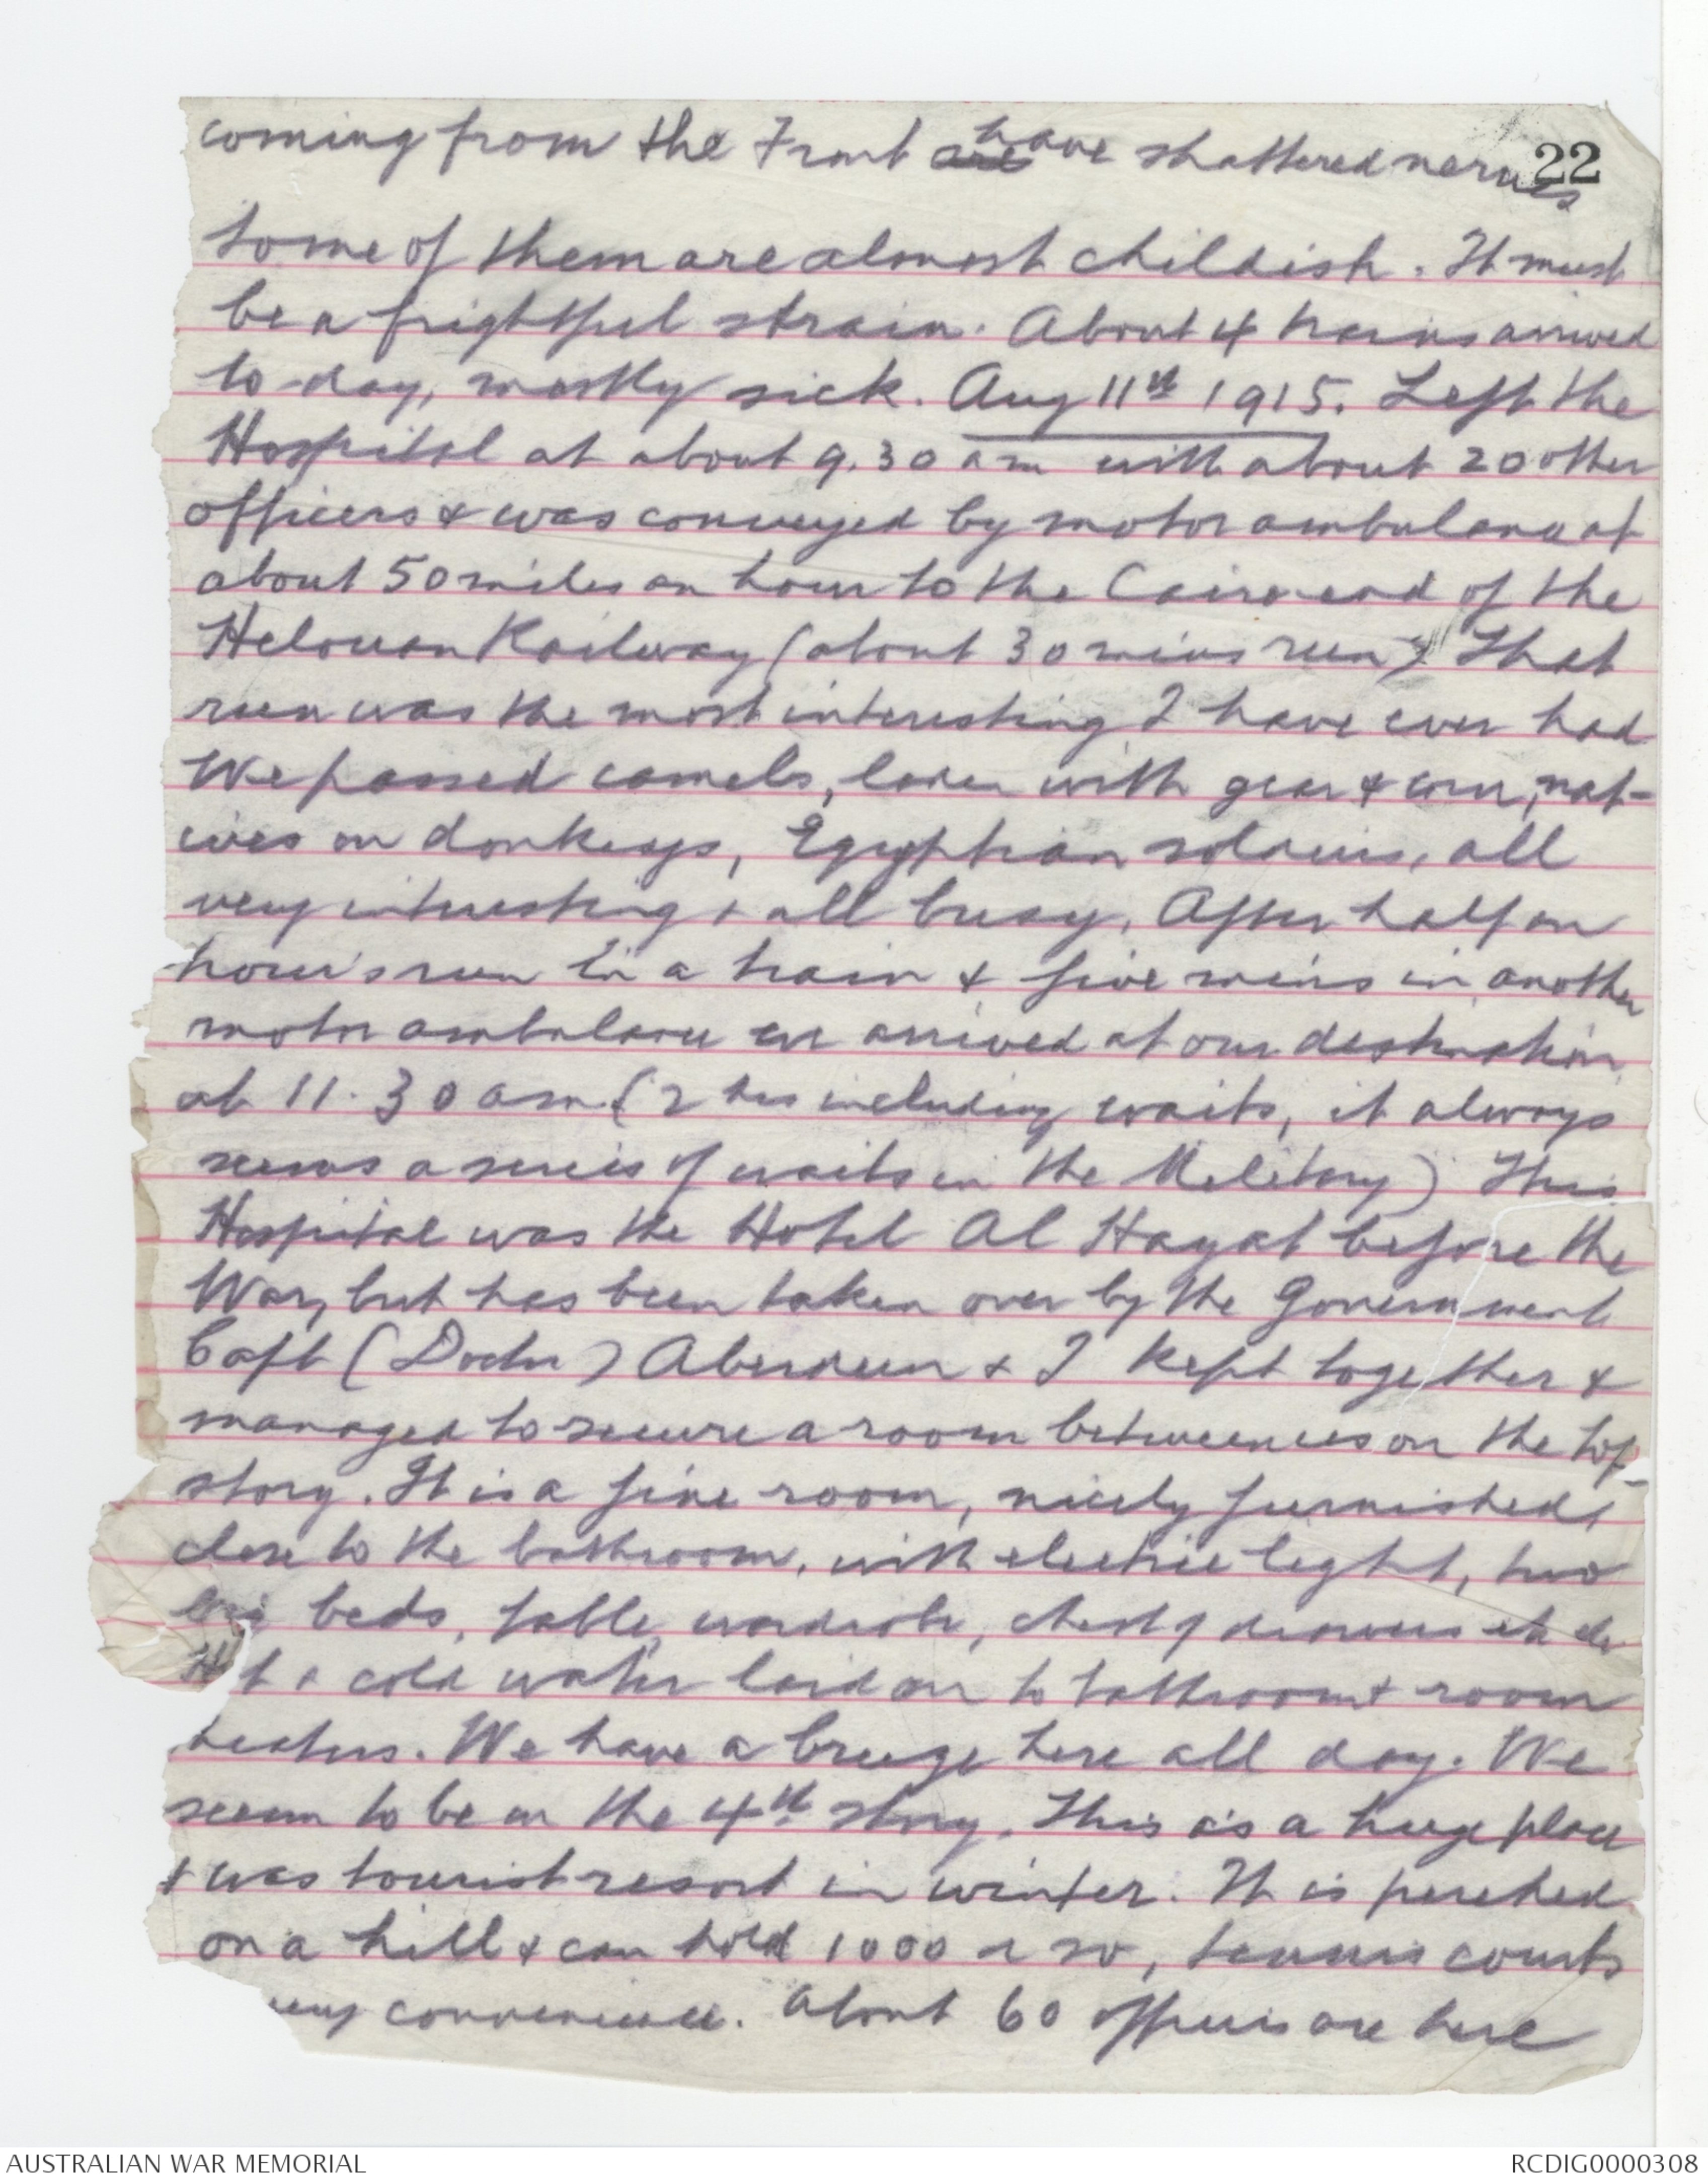 22
coming from the Front are have shattered nerves
Some of them are almost childish. It must
be a frightful strain. About 4 trains arrived
to-day, mostly sick. Aug 11th 1915. Left the
Hospital at about 9.30 am with about 20 other
officers & was conveyed by motor ambulance at
about 50 miles an hour to the Cairo end of the
Helouan Railway (about 30 mins run) That
run was the most interesting I have ever had
We passed camels, laden with gear & corn, nat-
ives on donkeys, Egyptian soldiers, all
very interesting & all busy. After half an
hour's run in a train & five mins in another
motor ambulance we arrived at our destination
at 11.30 am. (2 hrs including waits, it always
seems a series of waits in the Military) This
Hospital was the Hotel Al Hayat before the
War, but has been taken over by the Government
Capt (Doctor) Aberdeen & I kept together &
managed to secure a room between us on the top
story. It is a fine room, nicely furnished,
close to the bathroom, with electric light, two
beds, table, wardrobe, chest of drawers etc etc.
H t & cold water laid on to bathroom & room
heaters. We have a breeze here all day. We
seem to be on the 4th story. This is a huge place
& was tourist resort in winter. It is perched
on a hill & can hold 1000 or so, tennis courts
very convenience. About 60 officers are here
AUSTRALIAN WAR MEMORIAL
RCDIG0000308